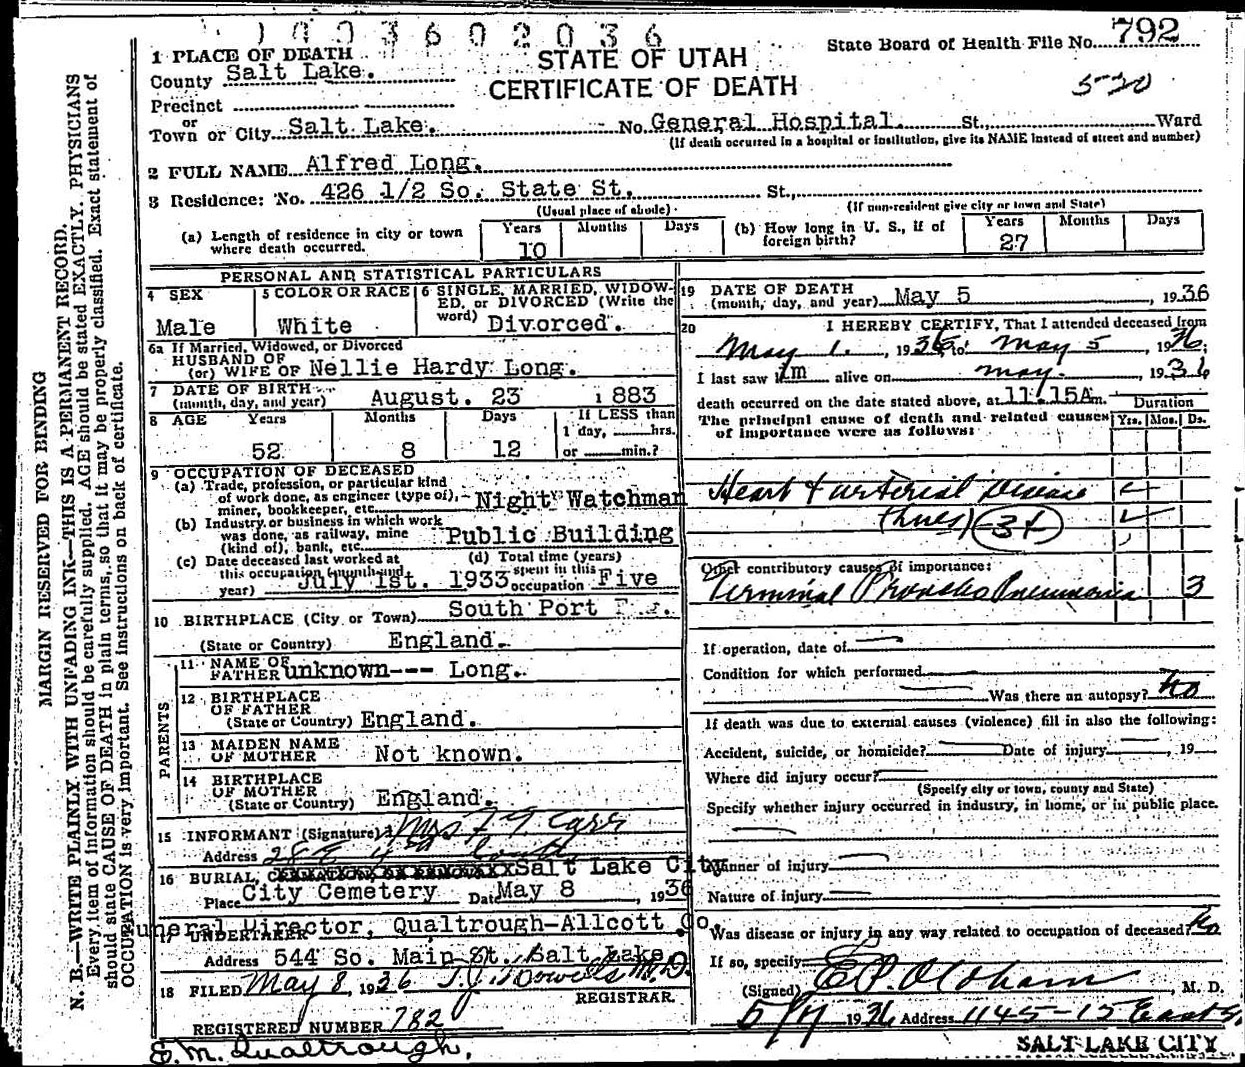 1003602036
State Board of Health File No. 792
1 PLACE OF DEATH
STATE OF UTAH
County Salt Lake.
CERTIFICATE OF DEATH
5-20
Precinct
or
Town or City Salt Lake. No. General Hospital. St., Ward
(If death occurred in a hospital or institution, give its NAME instead of street and number)
2 FULL NAME Alfred Long.
3 Residence: No. 426 1/2 So. State St. St.,
(Usual place of abode) (If non-resident give city or town and State)
(a) Length of residence in city or town where death occurred. Years 10 Months Days
(b) How long in U. S., if of foreign birth? Years 27 Months Days
PERSONAL AND STATISTICAL PARTICULARS
4 SEX Male
5 COLOR OR RACE White
6 SINGLE, MARRIED, WIDOW-
ED, or DIVORCED (Write the
word) Divorced.
6a If Married, Widowed, or Divorced
HUSBAND OF
(or) WIFE OF Nellie Hardy Long.
7 DATE OF BIRTH
(month, day, and year) August. 23 1883
8 AGE Years 52 Months 8 Days 12
If LESS than
1 day, hrs.
or min.?
9 OCCUPATION OF DECEASED
(a) Trade, profession, or particular kind
of work done, as engineer (type of),
miner, bookkeeper, etc. Night Watchman
(b) Industry or business in which work
was done, as railway, mine
(kind of), bank, etc. Public Building
(c) Date deceased last worked at
this occupation (month and
year) July 1st. 1933
(d) Total time (years)
spent in this
occupation Five
10 BIRTHPLACE (City or Town) South Port
(State or Country) England.
PARENTS
11 NAME OF
FATHER unknown--- Long.
12 BIRTHPLACE
OF FATHER
(State or Country) England.
13 MAIDEN NAME
OF MOTHER Not known.
14 BIRTHPLACE
OF MOTHER
(State or Country) England.
15 INFORMANT (Signature) Mrs Carr
Address South
16 BURIAL, CREMATION, OR REMOVAL Salt Lake City
Place City Cemetery Date May 8, 1936
Funeral Director, Qualtrough-Allcott Co.
17 UNDERTAKER
Address 544 So. Main St. Salt Lake.
18 FILED May 8, 1936 T.J. Howells M.D.
REGISTRAR.
REGISTERED NUMBER 782
E. M. Qualtrough.
19 DATE OF DEATH
(month, day, and year) May 5, 1936
20 I HEREBY CERTIFY, That I attended deceased from
May 1., 1936, to May 5, 1936;
I last saw im alive on May. 1936
death occurred on the date stated above, at 11:15A m.
The principal cause of death and related causes
of importance were as follows:
Duration
Yrs. Mos. Ds.
Heart & arterial Disease
(lues) 34
Other contributory causes of importance:
Terminal Broncho Pneumonia 3
If operation, date of
Condition for which performed
Was there an autopsy? No
If death was due to external causes (violence) fill in also the following:
Accident, suicide, or homicide? Date of injury, 19
Where did injury occur?
(Specify city or town, county and State)
Specify whether injury occurred in industry, in home, or in public place.
Manner of injury
Nature of injury
Was disease or injury in any way related to occupation of deceased? No
If so, specify
(Signed) E.P. Oldham, M. D.
5/7 1936 Address 1145-15 East S.
SALT LAKE CITY
MARGIN RESERVED FOR BINDING
N. B.—WRITE PLAINLY, WITH UNFADING INK—THIS IS A PERMANENT RECORD.
Every item of information should be carefully supplied. AGE should be stated EXACTLY. PHYSICIANS
should state CAUSE OF DEATH in plain terms, so that it may be properly classified. Exact statement of
OCCUPATION is very important. See instructions on back of certificate.